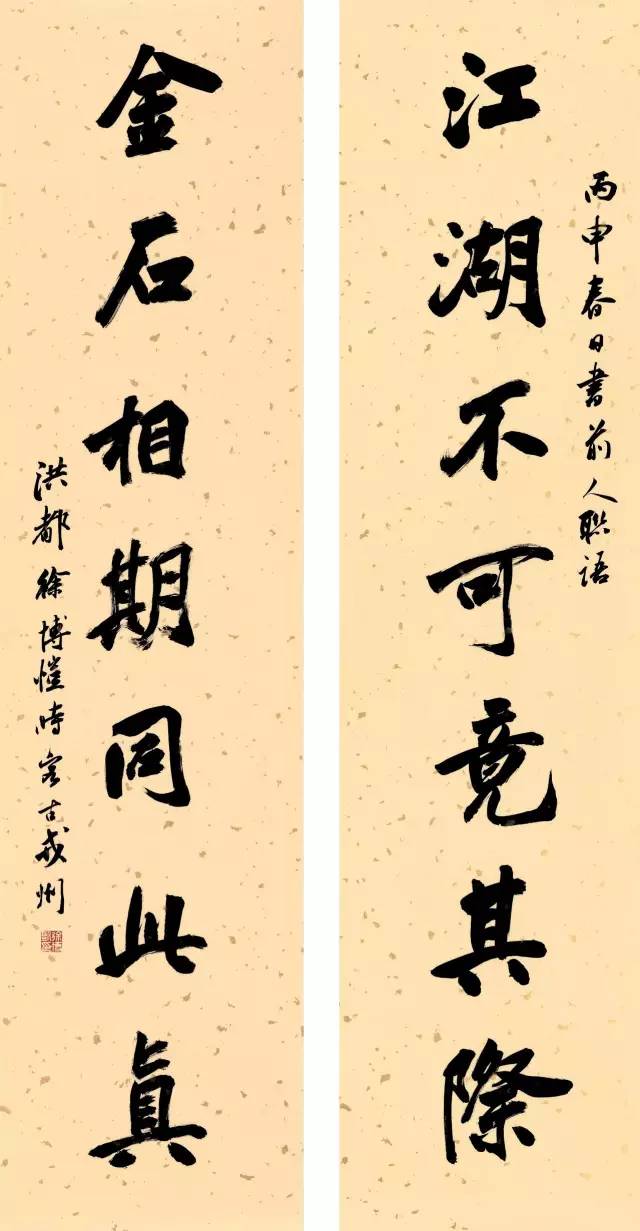 丙申春日書前人聯語
江湖不可竟其際
金石相期同此真
洪都徐博愷時客古戎州